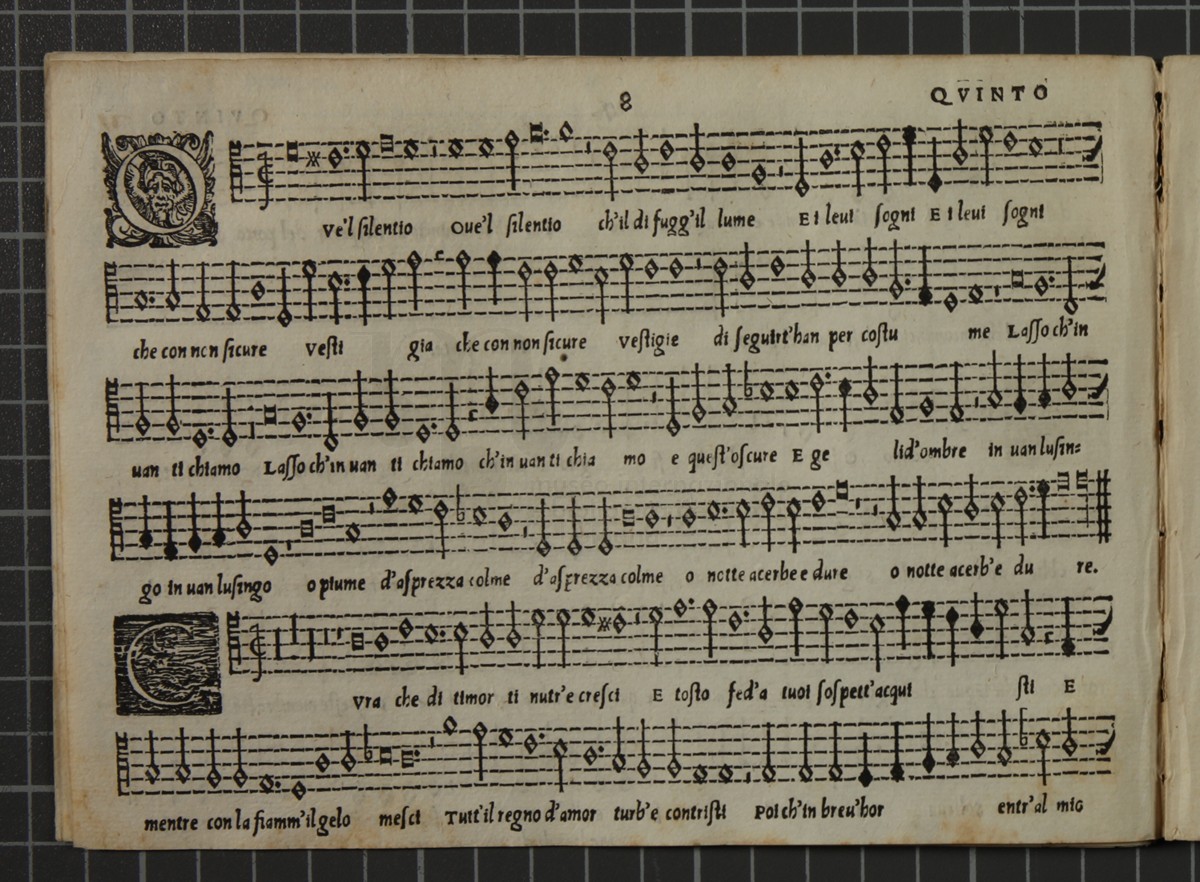 8
QVINTO
OVe'l ſilentio Oue'l ſilentio ch'il di fugg'il lume E i leui ſogni E i leui ſogni
che con non ſicure veſti gia che con non ſicure veſtigie di ſeguirt'han per coſtu me Laſſo ch'in
uan ti chiamo Laſſo ch'in uan ti chiamo ch'in uan ti chia mo e queſt'oſcure E ge lid'ombre in uan luſin=
go in uan luſingo o piume d'aſprezza colme d'aſprezza colme o notte acerbe e dure o notte acerb'e du re.
CVra che di timor ti nutr'e creſci E toſto fed'a tuoi ſoſpett'acqui ſti E
mentre con la fiamm'il gelo meſci Tutt'il regno d'amor turb'e contriſti Poi ch'in breu'hor entr'al mio